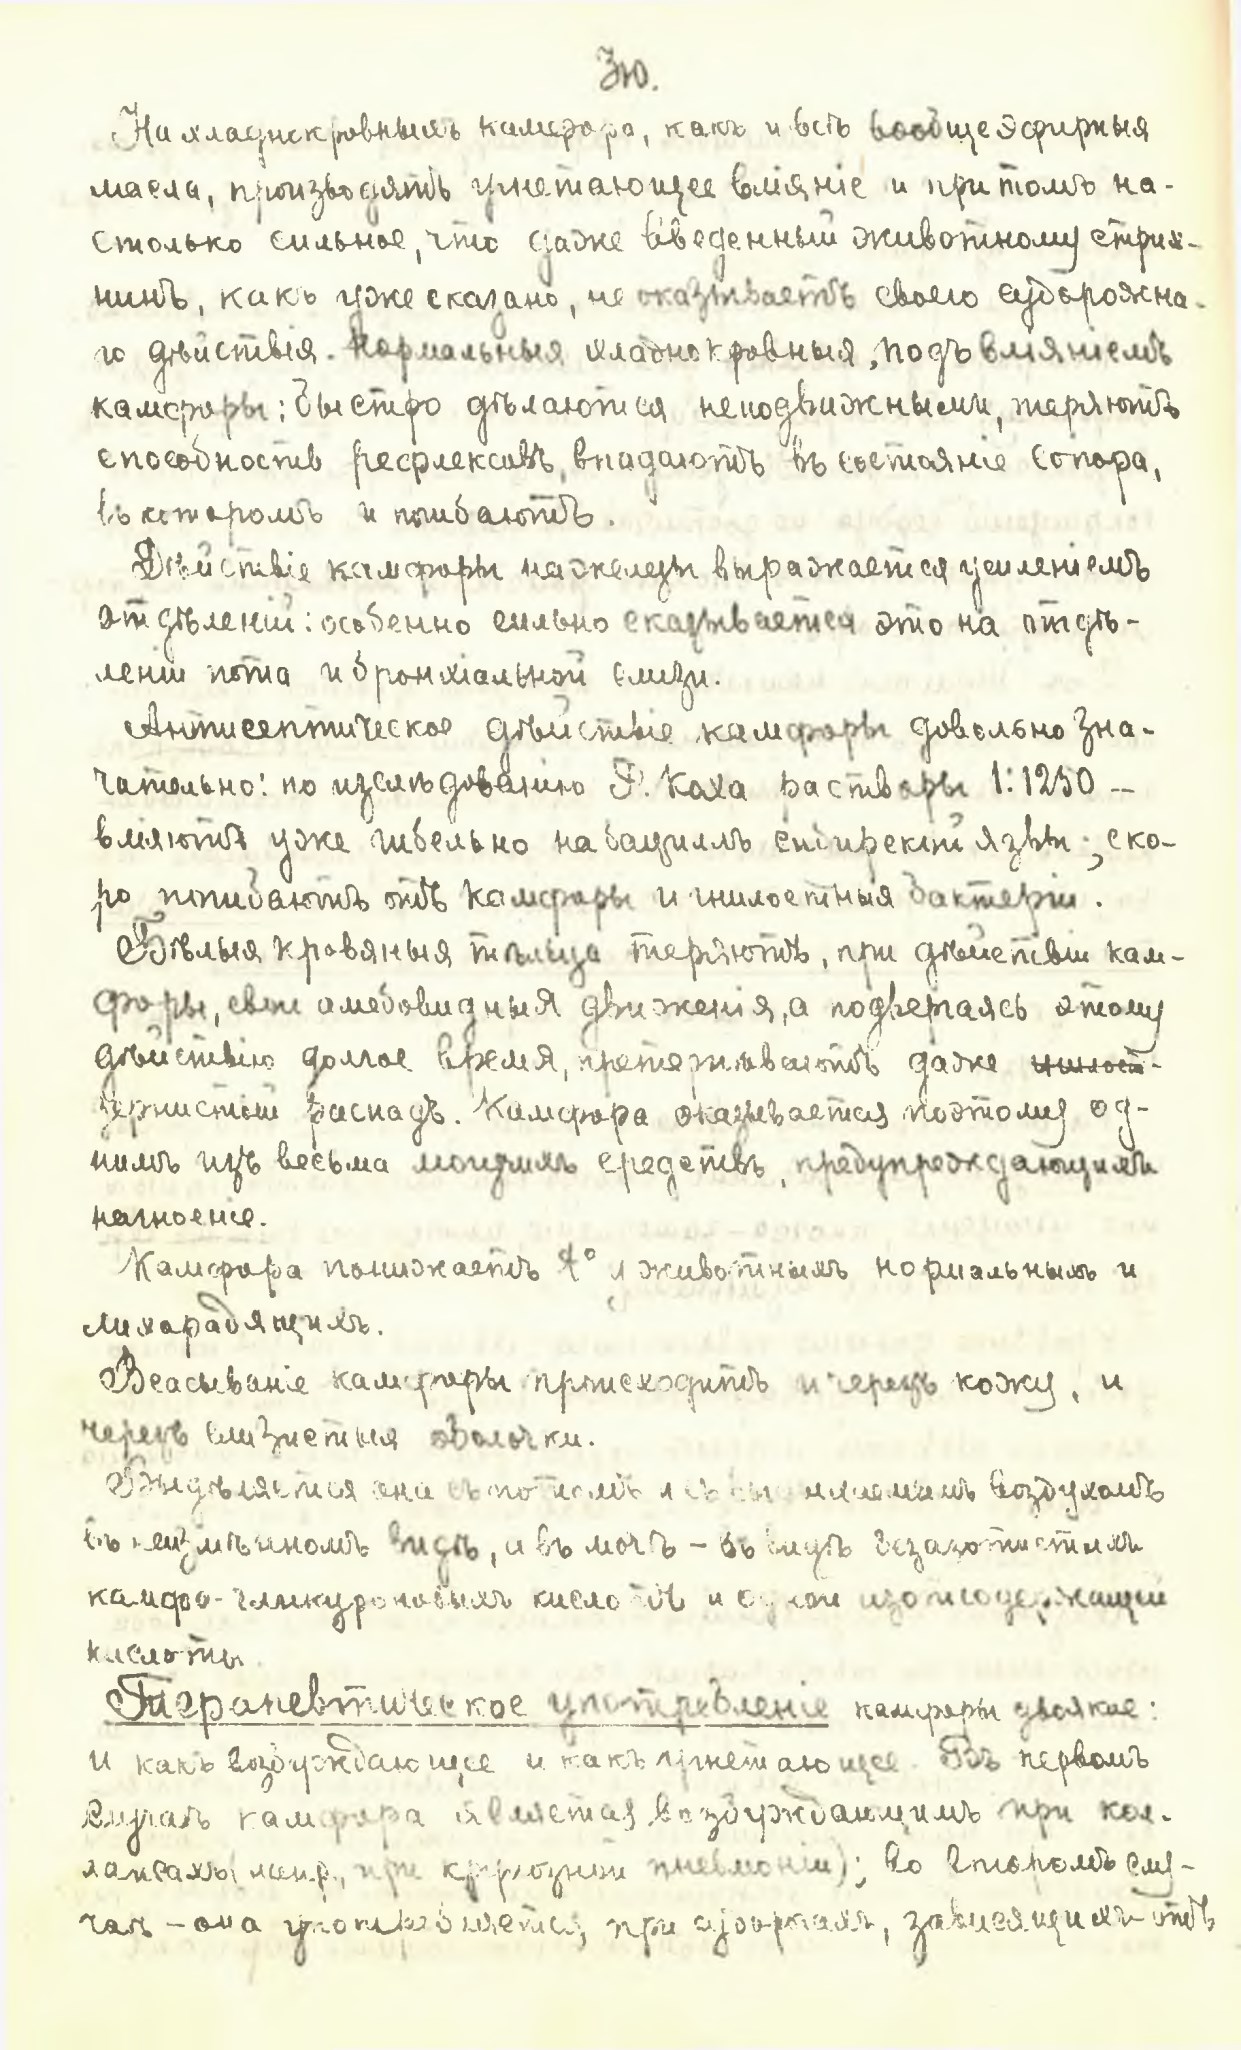 310.
На хладнокровныхъ камфора, какъ и всѣ вообще эфирныя
масла, производятъ угнетающее вліяніе и при томъ на-
столько сильное, что даже введенный животному стрих-
нинъ, какъ уже сказано, не оказываетъ своего судорожна-
го дѣйствія. Нормальныя хладнокровныя, подъ вліяніемъ
камфоры; быстро дѣлаются неподвижными, теряютъ
способность рефлексовъ, впадаютъ въ состояніе сопора,
въ которомъ и погибаютъ.
Дѣйствіе камфоры на железы выражается усиленіемъ
отдѣленій: особенно сильно сказывается это на отдѣ-
леніи пота и бронхіальной слизи.
Антисептическое дѣйствіе камфоры довольно зна-
чительно: по изслѣдованію Р. Коха растворы 1:1250 —
вліяютъ уже гибельно на бациллъ сибирской язвы; ско-
ро погибаютъ отъ камфоры и гнилостныя бактеріи.
Бѣлыя кровяныя тѣльца теряютъ, при дѣйствіи кам-
форы, свои амебовидныя движенія, а подвергаясь этому
дѣйствію долгое время, претерпѣваютъ даже
зернистый распадъ. Камфора оказывается поэтому од-
нимъ изъ весьма могучихъ средствъ, предупреждающихъ
нагноеніе.
Камфора понижаетъ t° у животныхъ нормальныхъ и
лихорадящихъ.
Всасываніе камфоры происходитъ и черезъ кожу, и
черезъ слизистыя оболочки.
Выдѣляется она съ потомъ и съ выдыхаемымъ воздухомъ
въ неизмѣнномъ видѣ, а въ мочѣ – въ видѣ безазотистыхъ
камфо-гликуроновыхъ кислотъ и одной азотсодержащей
кислоты.
Терапевтическое употребленіе камфоры двоякое:
и какъ возбуждающее и какъ угнетающее. Въ первомъ
случаѣ камфора является возбуждающимъ при кол-
лапсахъ (напр., при крупозной пневмоніи); во второмъ слу-
чаѣ – она употребляется, при судорогахъ, зависящихъ отъ